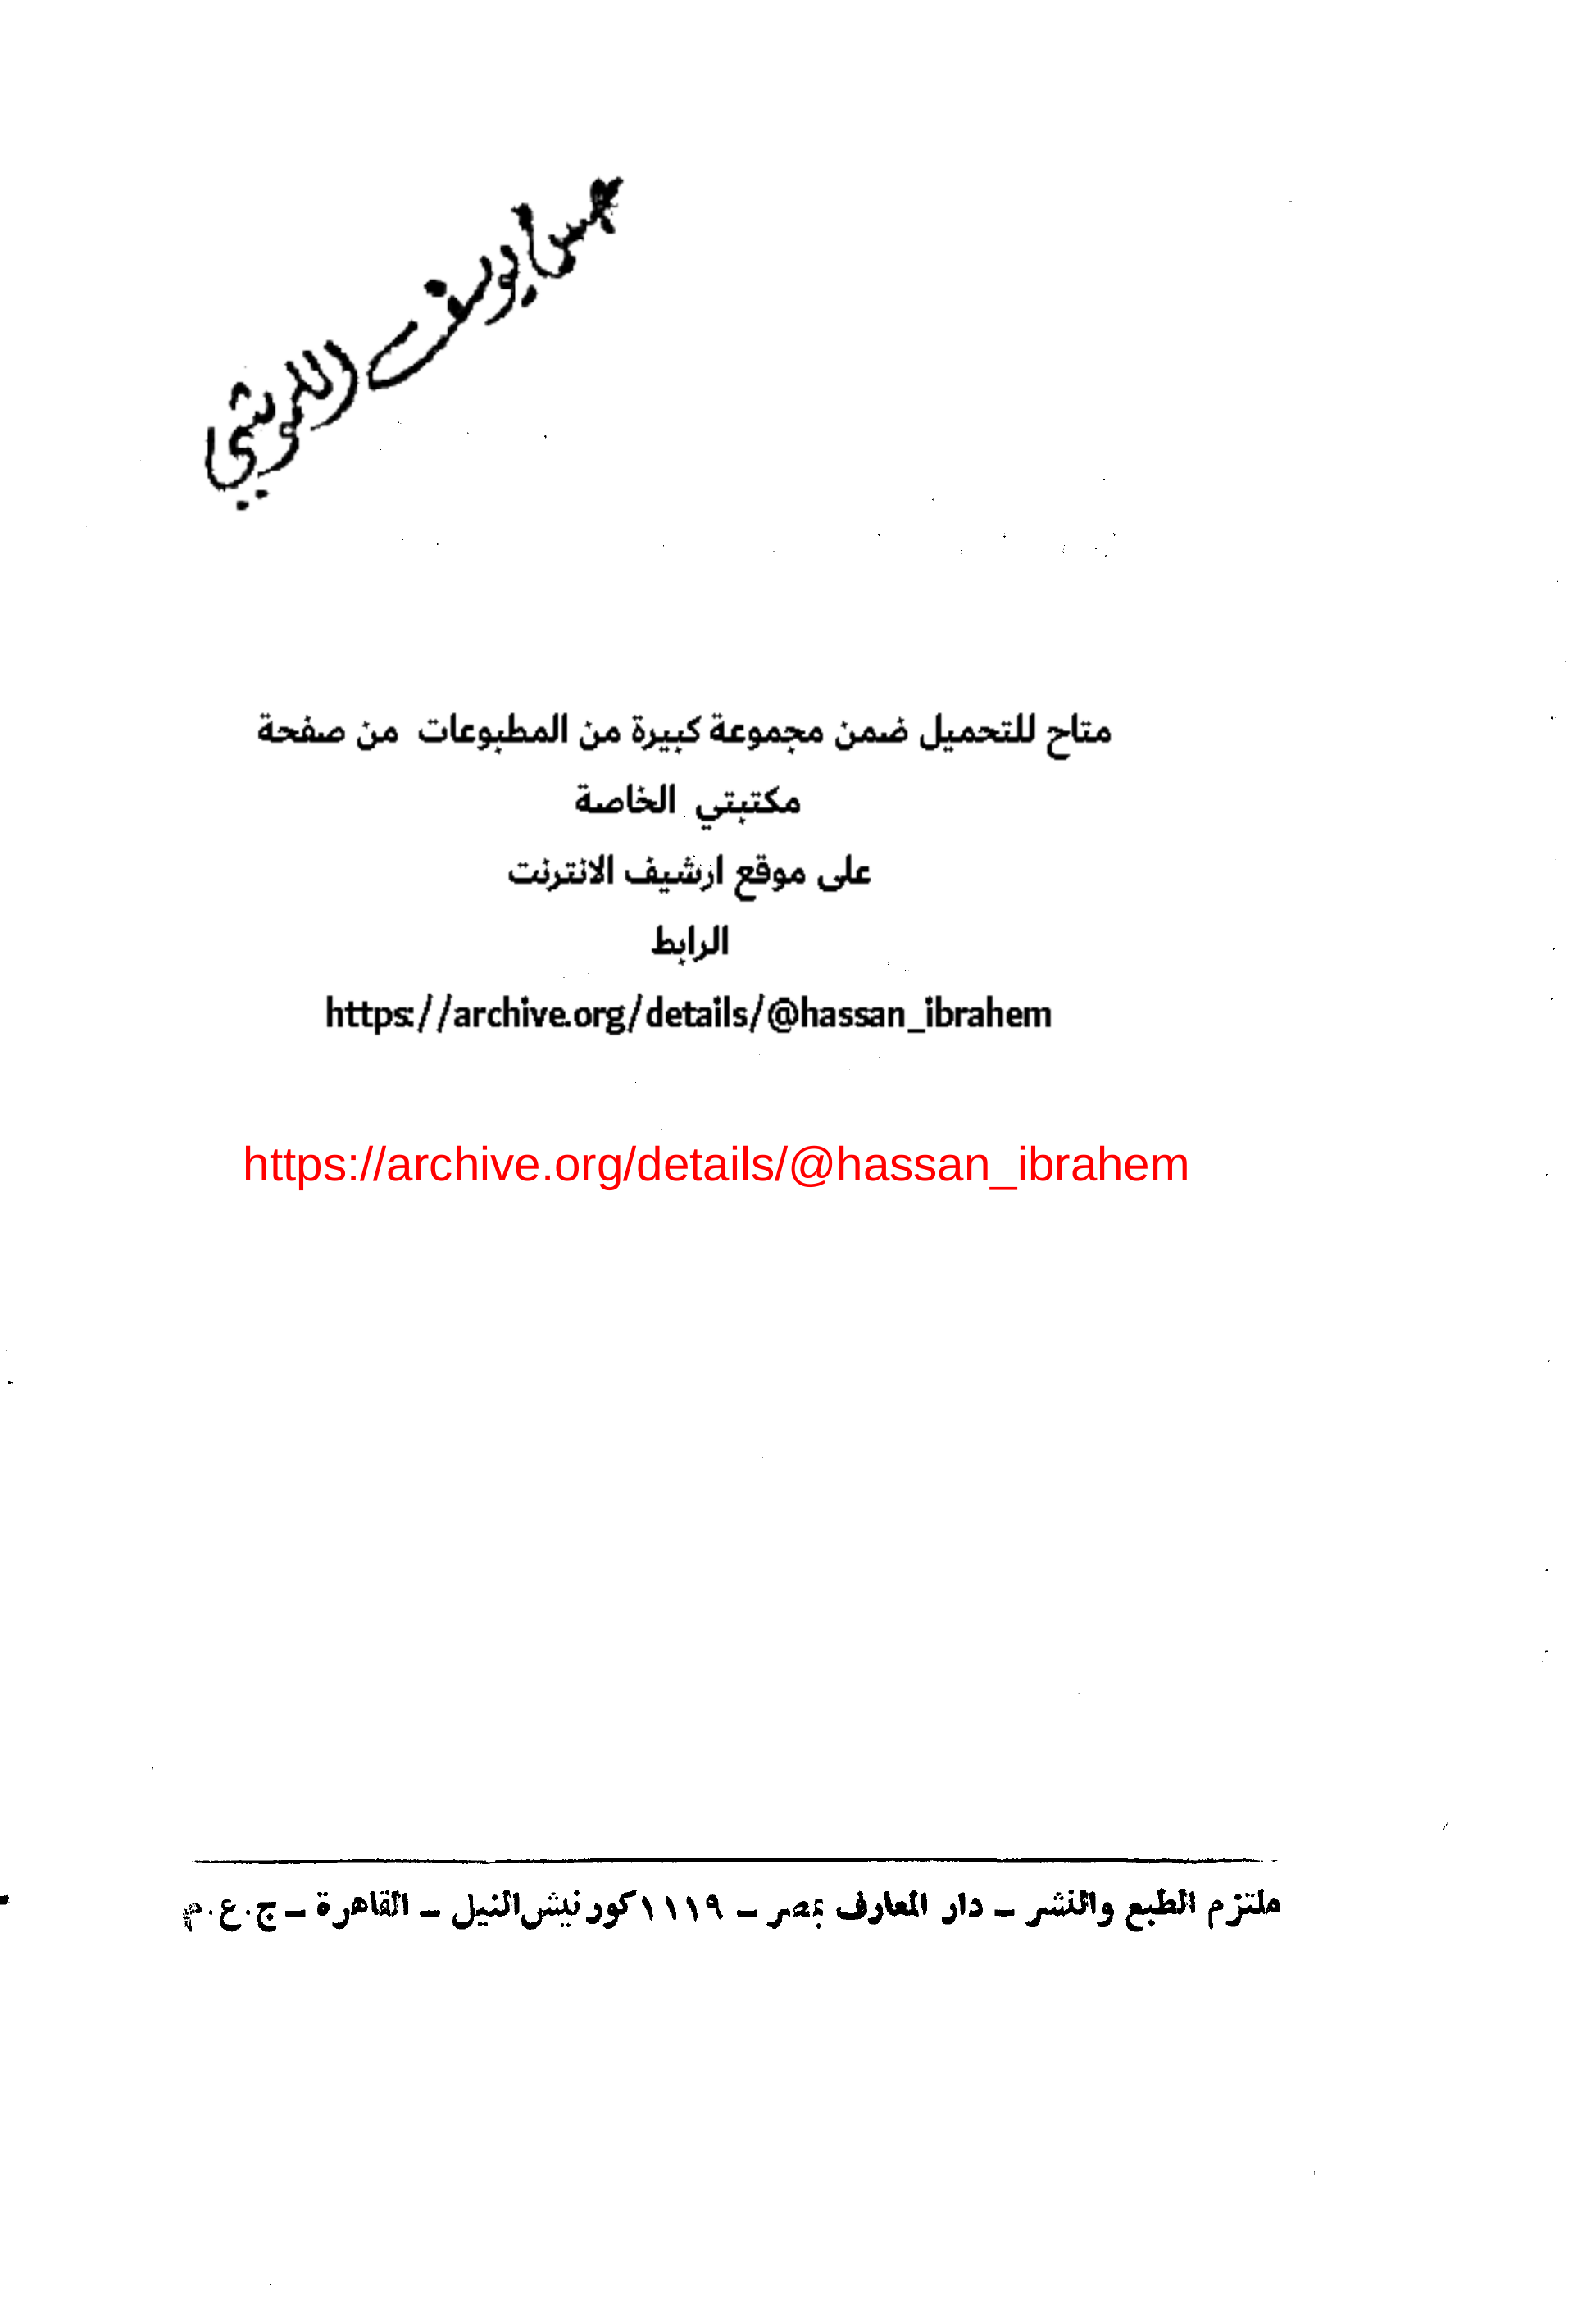 يوسف
متاح للتحميل ضمن مجموعة كبيرة من المطبوعات من صفحة
مكتبتي الخاصة
على موقع ارشيف الانترنت
الرابط
https://archive.org/details/@hassan_ibrahem
https://archive.org/details/@hassan_ibrahem
ملتزم الطبع والنشر – دار المعارف بمصر – ١١١٩ كورنيش النيل – القاهرة – ج.ع.م